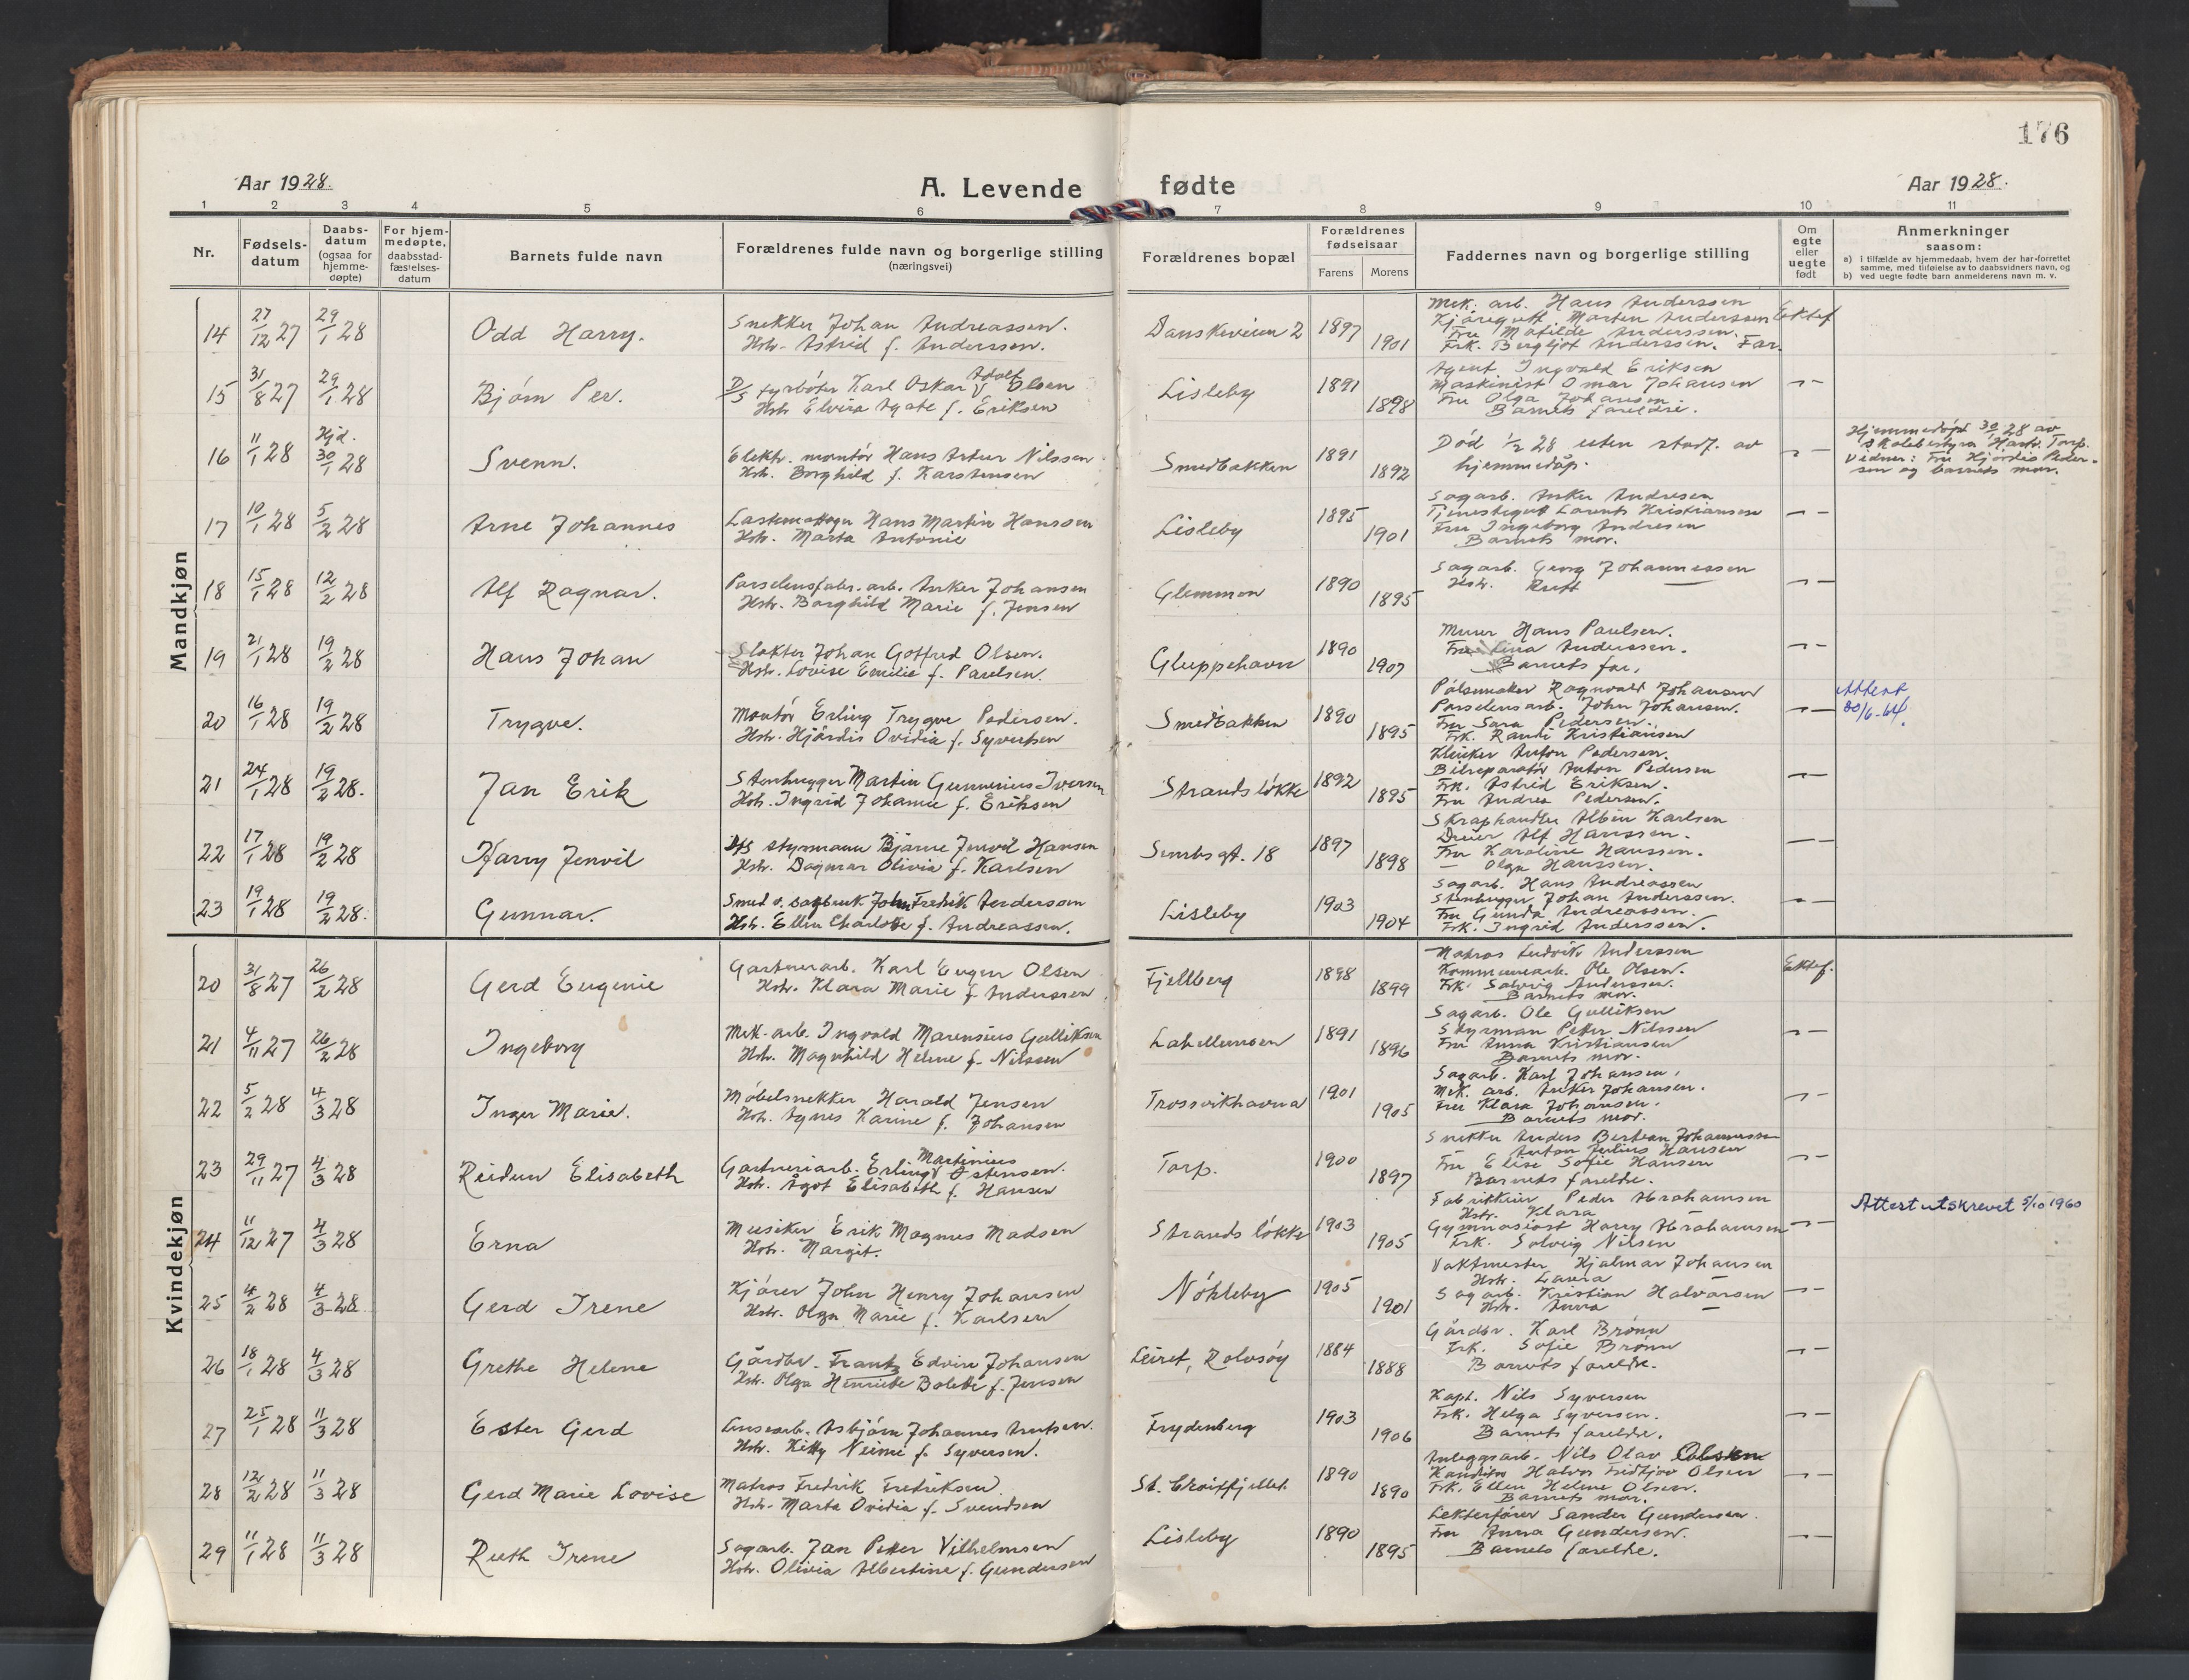 176
Aar 1928.
A. Levende fødte
Aar 1928.
1 2 3 4 5 6 7 8 9 10 11
Nr.
Fødsels-
datum
Daabs-
datum
(ogsaa for
hjemme-
døpte)
For hjem-
medøpte,
daabsstad-
fæstelses-
datum
Barnets fulde navn
Forældrenes fulde navn og borgerlige stilling
(næringsvei)
Forældrenes bopæl
Forældrenes
fødselsaar
Farens Morens
Faddernes navn og borgerlige stilling
Om
egte
eller
uegte
født
Anmerkninger
saasom:
a) i tilfælde av hjemmedaab, hvem der har forrettet
samme, med tilføielse av to daabsvidners navn, og
b) ved uegte fødte barn anmelderens navn m. v.
Mandkjøn
14 27/12 27 29/1 28 Odd Harry.
Snekker Johan Andreassen.
Hstr. Astrid f. Anderssen.
Danskeveien 2 1897 1901
Mek. arb. Hans Anderssen
Kjøregutt Marten Anderssen
Fru Matilde Anderssen.
Frk. Bergljot Anderssen. Far.
Ektef
15 31/8 27 29/1 28 Bjørn Per.
D/S fyrbøter Karl Oskar Adolf Olsen
Hstr Elvira Agate f. Eriksen
Lisleby 1891 1898
Agent Ingvald Eriksen
Maskinist Omar Johansen
Fru Olga Johansen.
Barnets foreldre.
16 11/1 28 Hjd. 30/1 28 Svenn.
Elektr. montør Hans Artur Nilssen
Hstr. Borghild f. Karstensen
Smedbakken 1891 1892
Død 1/2 28 uten stadf. av
hjemmedåp.
Hjemmedøpt 30/1 28 av
skolebestyrer Torp.
Vidner: Fru Hjørdis Peder-
sen og barnets mor.
17 10/1 28 5/2 28 Arne Johannes
Hans Martin Hanssen
Hstr. Marta Antonie
Lisleby 1895 1901
Sagarb. Anker Andresen
Tjenestegutt Laurits Kristiansen
Fru Ingeborg Andresen
Barnets mor.
18 15/1 28 12/2 28 Alf Ragnar.
Porselensfabr. arb. Anker Johansen
Hstr. Borghild Marie f. Jensen
Glemmen 1890 1895
Sagarb. Georg Johannessen
Hstr. Rutt
19 21/1 28 19/2 28 Hans Johan
Slakter Johan Gotfred Olsen.
Hstr. Lovise Emilie f. Paulsen.
Gluppehavn 1890 1907
Murer Hans Paulsen.
Fru Lina Anderssen.
Barnets far.
20 16/1 28 19/2 28 Trygve.
Montør Erling Trygve Pedersen.
Hstr. Hjørdis Ovidia f. Syvertsen
Smedbakken 1890 1895
Pølsemaker Ragnvald Johansen
Porselensarb. John Johansen.
Fru Sara Pedersen.
Frk. Randi Kristiansen
Attest
30/6-64.
21 24/1 28 19/2 28. Jan Erik
Stenhugger Martin Gunnerius Iversen
Hstr. Ingrid Johanne f. Eriksen
Strandsløkke 1892 1895
Klinker Anton Pedersen.
Bilreparatør Anton Pedersen
Frk. Astrid Eriksen.
Fru Andrea Pedersen.
22 17/1 28 19/2 28 Harry Jenvil
D/S styrmann Bjarne Jenvil Hansen
Hstr. Dagmar Olivia f. Karlsen
Sembs gt. 18 1897 1898
Skraphandler Albin Karlsen
Dreier Alf Hanssen.
Fru Karoline Hanssen.
— Olga Hanssen.
23 19/1 28 19/2 28. Gunnar.
Smed v. sagbruk John Fredrik Anderssen
Hstr. Ellen Charlotte f. Andreassen.
Lisleby 1903 1904
Sagarb. Hans Andreassen
Stenhugger Johan Anderssen.
Fru Gunda Andreassen.
Frk. Ingrid Anderssen.
Kvindekjøn
20 31/8 27 26/2 28 Gerd Eugenie
Gartnerarb. Karl Eugen Olsen
Hstr. Klara Marie f. Anderssen
Fjellberg 1898 1899
Matros Ludvik Anderssen
Kommunearb. Ole Olsen.
Frk. Solveig Anderssen.
Barnets mor.
Ektef.
21 4/11 27 26/2 28 Ingeborg
Mek. arb. Ingvald Marensius Gulliksen
Hstr. Magnhild Helene f. Nilssen
1891 1896
Sagarb. Ole Gulliksen
Styrman Peter Nilssen
Fru Anna Kristiansen
Barnets mor.
22 5/2 28 4/3 28 Inger Marie.
Møbelsnekker Harald Jensen
Hstr. Agnes Karine f. Johansen
Trossvikhavna 1901 1905
Sagarb. Karl Johansen,
Mek. arb. Anker Johansen.
Fru Klara Johansen.
Barnets mor.
23 29/11 27 4/3 28 Reidun Elisabeth
Gartneriarb. Erling Martinius Østensen.
Hstr. Ågot Elisabeth f. Hansen
Torp. 1900 1897
Snekker Anders Bertean Johannessen
Anton Julius Hansen
Fru Elise Sofie Hansen
Barnets foreldre.
24 11/12 27 4/3 28 Erna
Musiker Erik Magnus Madsen
Hstr. Margit.
Strandsløkke 1903 1905
Fabrikkeier Peder Abrahamsen
Hstr. Klara
Gymnasiast Harry Abrahamsen
Frk. Solveig Nilsen
Attest utskrevet 5/10 1960
25 4/2 28 4/3 28. Gerd Irene
Kjører John Henry Johansen
Hstr. Olga Marie f. Karlsen
Nøkleby 1905 1901
Vaktmester Hjalmar Johansen
Hstr. Laura
Sagarb. Kristian Halvorsen
Hstr. Anna —
26 18/1 28 4/3 28 Grethe Helene
Gårdbr. Frantz Edvin Johansen
Hstr. Olga Henriette Bolette f. Jensen
Leiret, Rolvsøy 1884 1888
Gårdbr. Karl Brønn
Frk. Sofie Brønn
Barnets foreldre.
27 25/1 28 11/3 28 Ester Gerd
Asbjørn Johannes Arntsen.
Hstr. Kitty Neimi f. Syversen.
Frydenberg 1903 1906
Kapt. Nils Syversen
Frk. Helga Syversen.
Barnets foreldre.
28 12/2 28 11/3 28 Gerd Marie Lovise
Matros Fredrik Fredriksen.
Hstr. Marta Ovidia f. Svendsen
St. Croixfjellet. 1890 1890
Anleggsarb. Nils Olav Olsen
Konditor Halvor Fridtjov Olsen
Frk. Ellen Helene Olsen.
Barnets mor.
29 11/1 28 11/3 28 Ruth Irene
Sagarb. Jan Petter Vilhelmsen
Hstr. Olivia Albertine f. Gundersen
Lisleby 1890 1895
Lekterfører Sander Gundersen.
Fru Anna Gundersen.
Barnets foreldre.